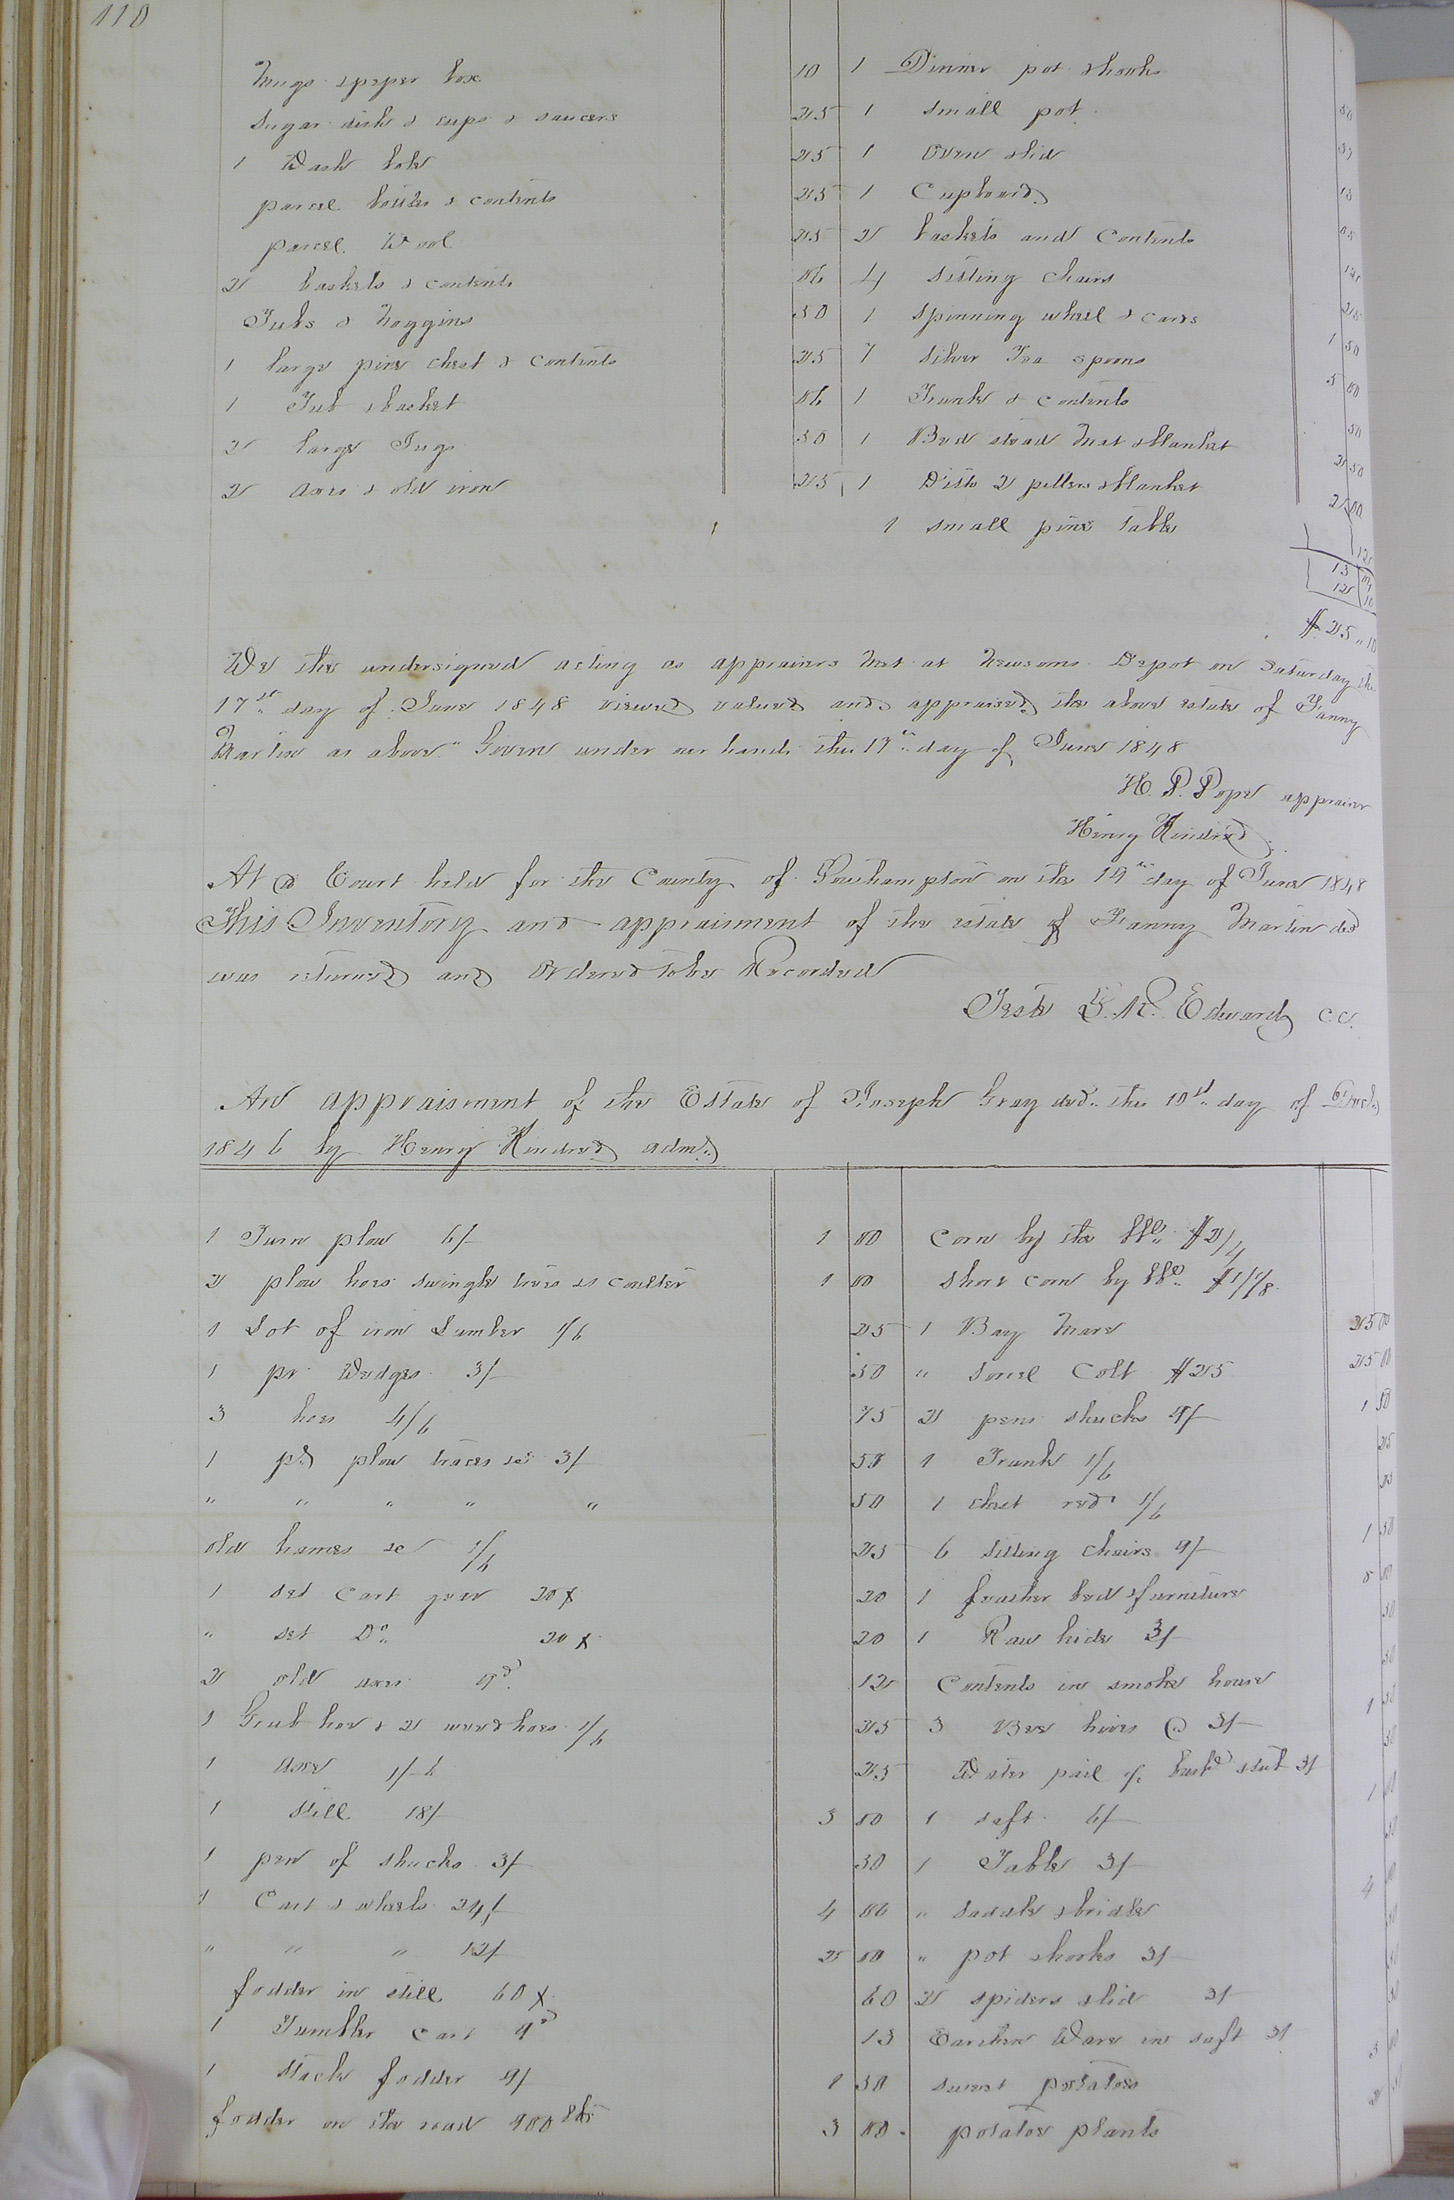 110
Mugs & peper box 10
Sugar dish & cups & saucers 25
1 Wash bole 25
parcel bottles & contents 25
parcel Wool 25
2 baskets & contents 06
Tubs & Noggins 50
1 large pine chest & contents 25
1 Tub & basket 06
2 large Jugs 50
2 axes & old iron 25
1 Dinner pot & hooks
1 small pot 50
1 Oven & lid
1 Cupboard
2 baskets and Contents
4 Sitting chairs
1 Spinning wheel & cards
7 Silver Tea spoons 1 50
1 Trunk & contents 5 00
1 Bed stead Mat & blanket 50
1 Dish 2 pillers & blanket 2 50
1 small pine table 2 00
$25 " 10
We the undersigned acting as appraisers Met at Newsoms Depot on Saturday the
17th day of June 1848 viewed valued and appraised the above estate of Fanny
Martin as above " Given under our hands this 17th day of June 1848
H. P. Pope appraiser
Henry Kindred
At a Court held for the County of Southampton on the 19th day of June 1848
This Inventory and appraisment of the estate of Fanny Martin ded
was returned and Ordered to be Recorded
Teste L. R. Edwards C.C.
An appraisment of the Estate of Joseph Gray ded. this 10th day of
1846 by Henry Kindred adm.
1 Turn plow 6/ 1 00
2 plow hoes swingle trees & coulter 1 00
1 Lot of iron Lumber 1/6 25
1 pr Wedges 3/ 50
3 hoes 4/6 75
1 pr plow traces &c 3/ 50
" " " " " 50
old hames &c 1/6 25
1 set Cart gear 20 x 20
" set Do. 20 x 20
2 old axes 9d 12
1 Grub hoe & 2 weed hoes 1/6 25
1 axe 1/6 25
1 Still 18/ 3 00
1 pen of shucks 3/ 50
1 Cart & wheels 24/ 4 00
" " " 12/ 2 00
fodder in still 60 x 60
1 Tumbler cart 9d 13
1 Stack fodder 9/ 1 50
fodder on the road 900 lbs 3 00
Corn by the bbl. $2/4
Short corn by bbl. $1/7/8
1 Bay Mare 25 00
" Sorrel Colt $25 25 00
2 pens shucks 9/ 1 50
1 Trunk 1/6 25
1 chest red 1/6 25
6 Sitting chairs 9/ 1 50
1 feather bed & furniture
1 Raw hide 3/ 50
Contents in smoke house
3 Bee hives @ 3/ 1 50
Water pail &c 3/
1 safe 6/
1 Table 3/
" Saddle & bridle
" pot & hooks 3/
2 spiders & lid 3/
Earthen Ware in safe 3/
sweet potatoes
potatoe plants